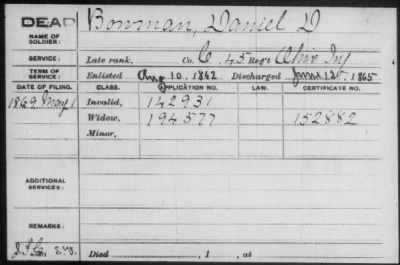 DEAD Bowman, Daniel D
NAME OF SOLDIER:
SERVICE: Late rank, Co. C, 45 Reg't Ohio Inf
TERM OF SERVICE: Enlisted Aug 10, 1862. Discharged June 12, 1865
DATE OF FILING. CLASS. APPLICATION NO. LAW. CERTIFICATE NO.
1869 May 1 Invalid, 142931
Widow, 194577 152882
Minor,
ADDITIONAL SERVICES:
REMARKS:
Died , 1 , at